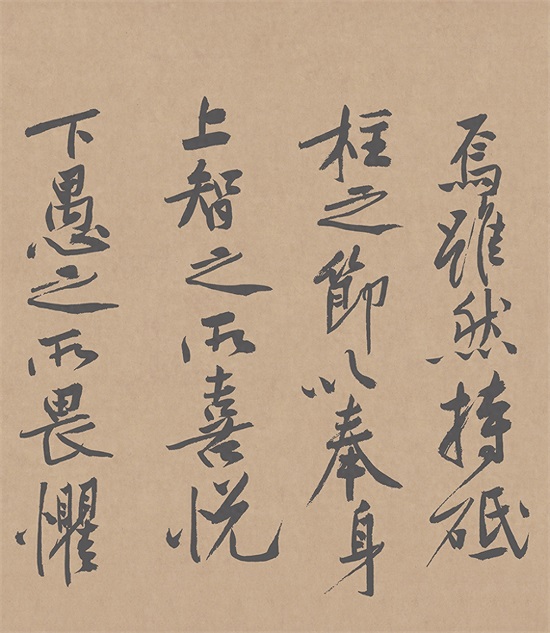 焉雖然持砥
柱之節以奉身
上智之所喜悦
下愚之所畏懼